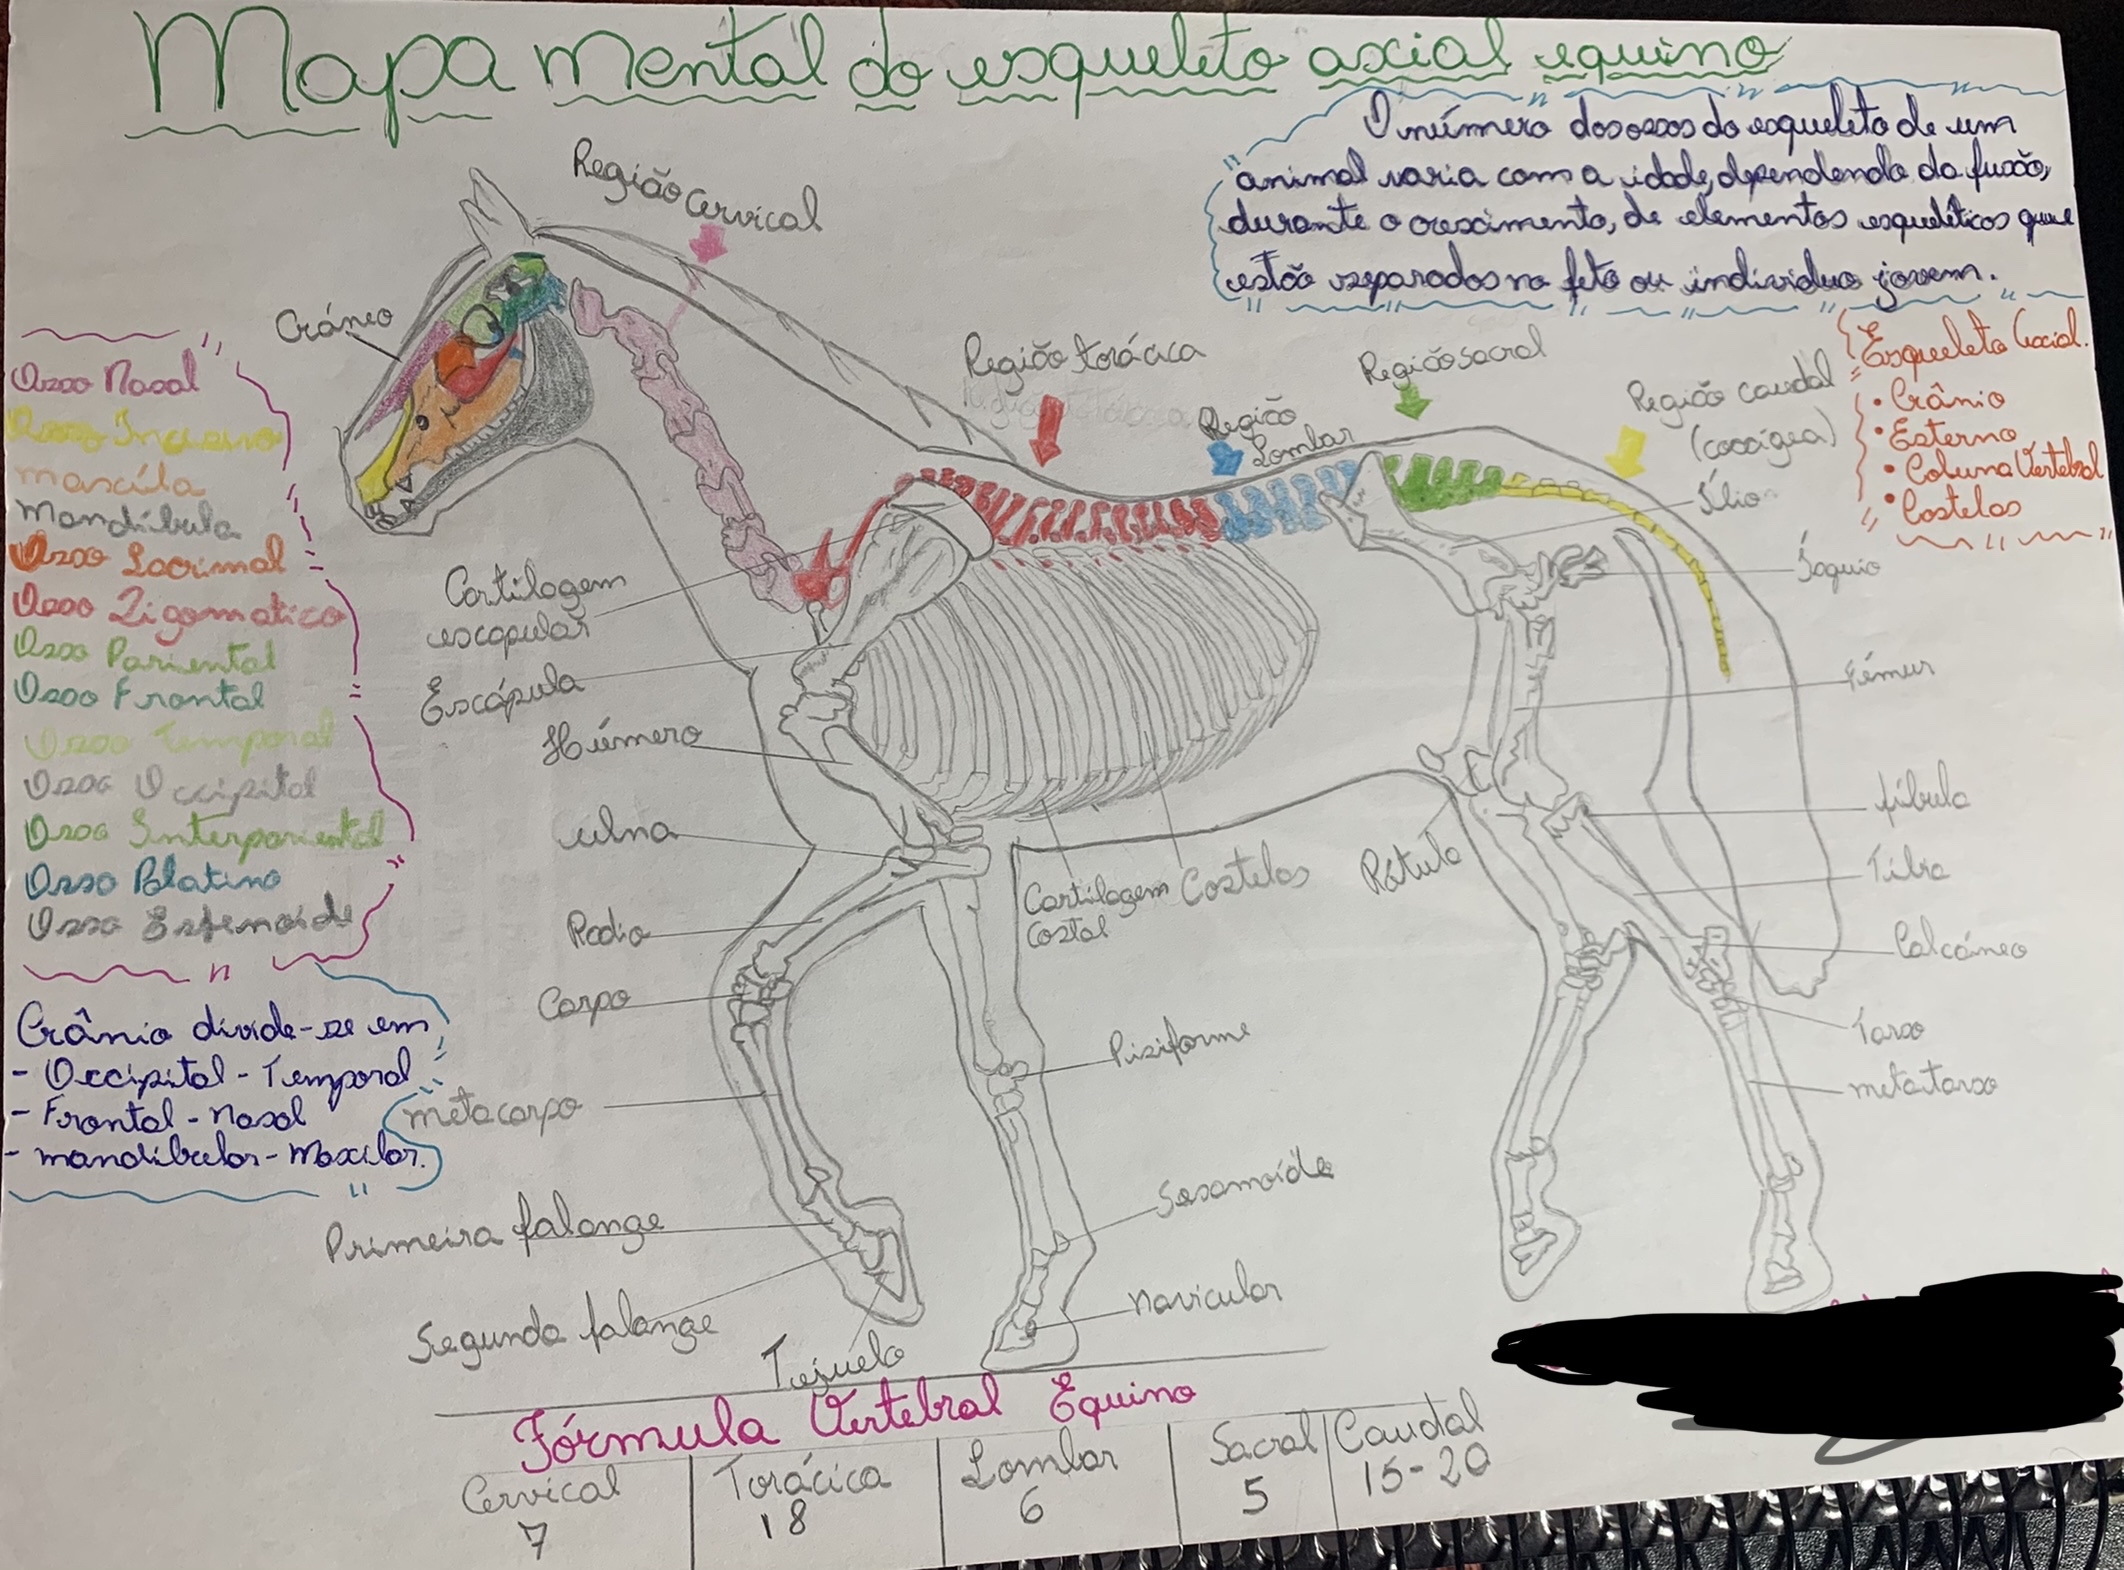 Mapa mental do esqueleto axial equino
O número dos ossos do esqueleto de um
animal varia com a idade, dependendo da fusão,
durante o crescimento, de elementos esqueléticos que
estão separados no feto ou indivíduo jovem.
Região cervical
Cráneo
Região torácica
Região
Lombar
Região sacral
Região caudal
(coccígea)
Esqueleto Axial.
• Crânio
• Esterno
• Coluna Vertebral
• Costelas
Osso Nasal
Osso Incisivo
mascíla
Mandíbula
Osso Lacrimal
Osso Zigomatico
Osso Pariental
Osso Frontal
Osso Temporal
Osso Occipital
Osso Interpariental
Osso Palatino
Osso Esfenoide
Crânio divide-se em
- Occipital - Temporal
- Frontal - Nasal
- mandíbular - Maxilar.
Cartilagem
escapular
Escápula
Húmero
ulna
Radio
Carpo
metacarpo
Primeira falange
Segunda falange
Tejuelo
Cartilagem
costal
Costelas
Rótula
Pisiforme
Sesamoíde
Navicular
Ílio
Ísquio
Fémur
fíbula
Tíbia
Calcáneo
Tarso
metatarso
Fórmula Vertebral Equino
Cervical Torácica Lombar Sacral Caudal
7 18 6 5 15-20